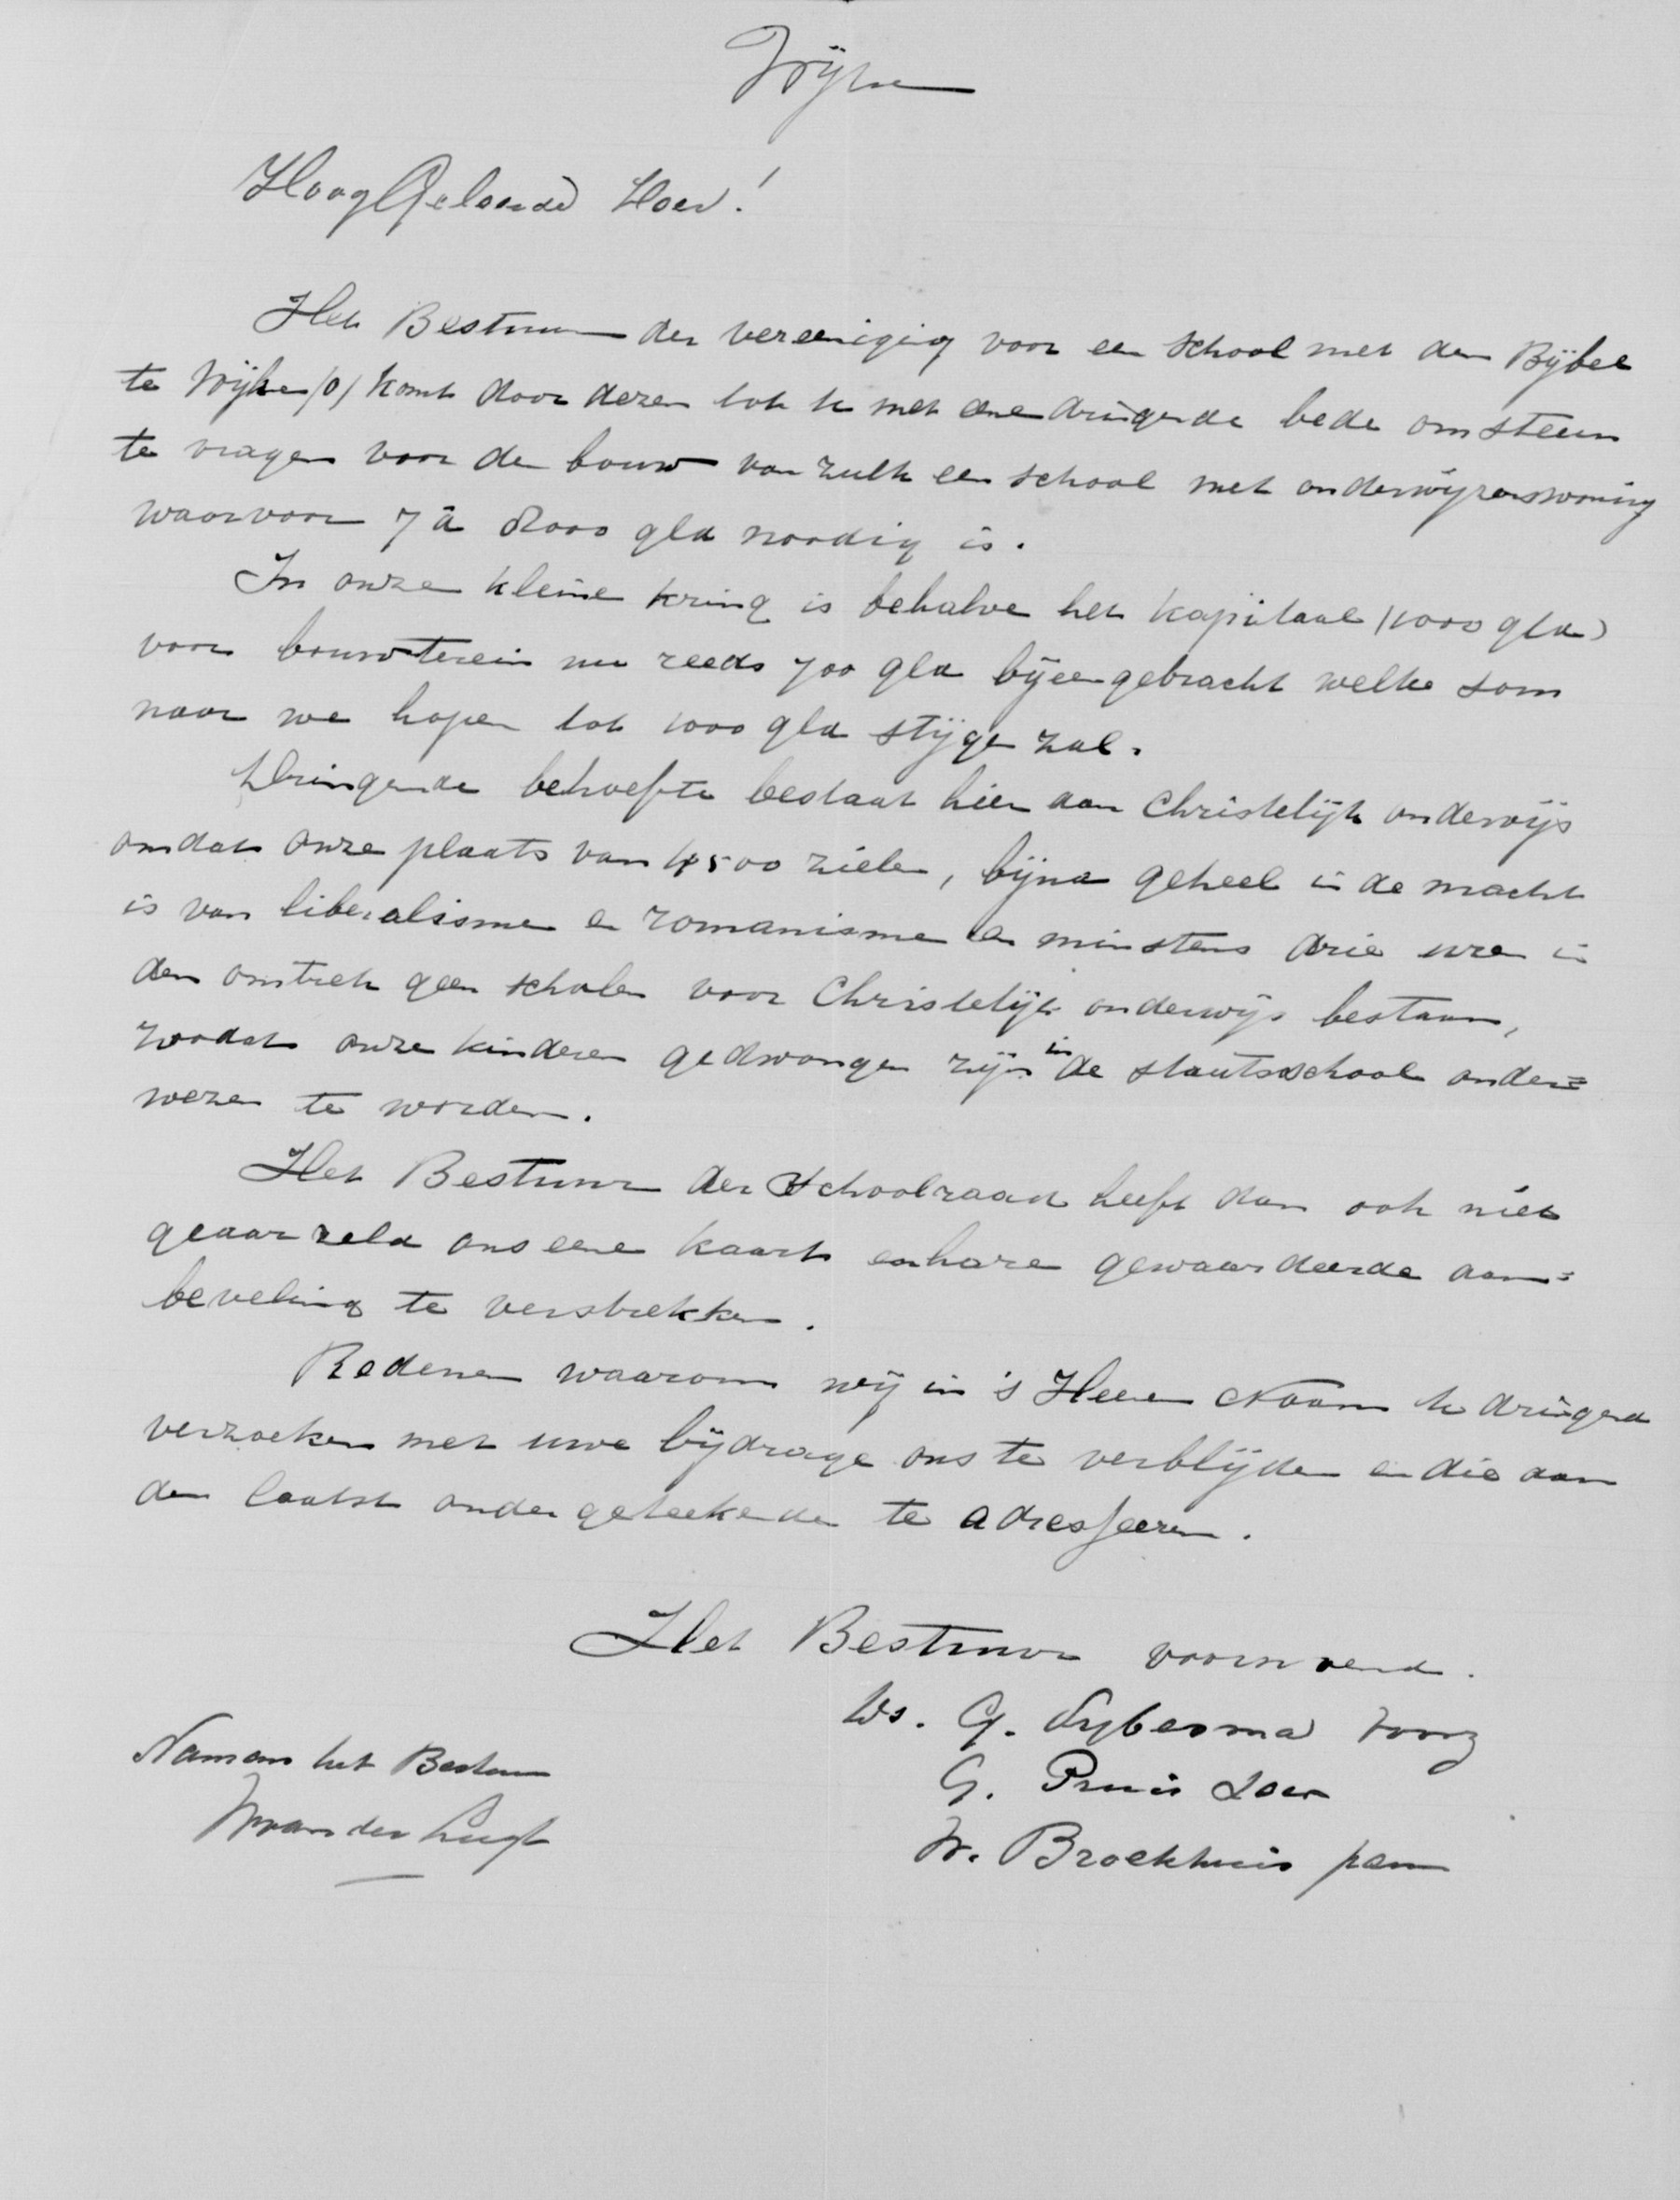 Wijhe
HoogGeleerde Heer!
Het Bestuur der vereeniging voor een School met den Bijbel
te Wijhe (O) komt door dezen tot U met eene dringende bede om steun
te vragen voor den bouw van zulk een school met onderwijzerswoning
waarvoor 7 à 8000 gld noodig is.
In onze kleine kring is behalve het kapitaal (1000 gld)
voor bouwterrein nu reeds 700 gld bijeengebracht welke som
naar we hopen tot 1000 gld stijgen zal.
Dringende behoefte bestaat hier aan Christelijk onderwijs
omdat onze plaats van 4500 zielen, bijna geheel in de macht
is van liberalisme en romanisme en minstens drie uren in
den omtrek geen scholen voor Christelijk onderwijs bestaan,
zoodat onze kinderen gedwongen zijn in de staatsschool onder=
wezen te worden.
Het Bestuur der Schoolraad heeft dan ook niet
geaarzeld ons eene kaart en hare gewaardeerde aan=
beveling te verstrekken.
Redenen waarom wij in 's Heeren Naam U dringend
verzoeken met uwe bijdrage ons te verblijden en die aan
den laatst ondergeteekenden te adresseeren.
Het Bestuur voornoemd.
Ds. G. Sybesma Voorz
G. Pruis Secr
W. Broekhuis penn
Namens het Bestuur
W van der Lugt